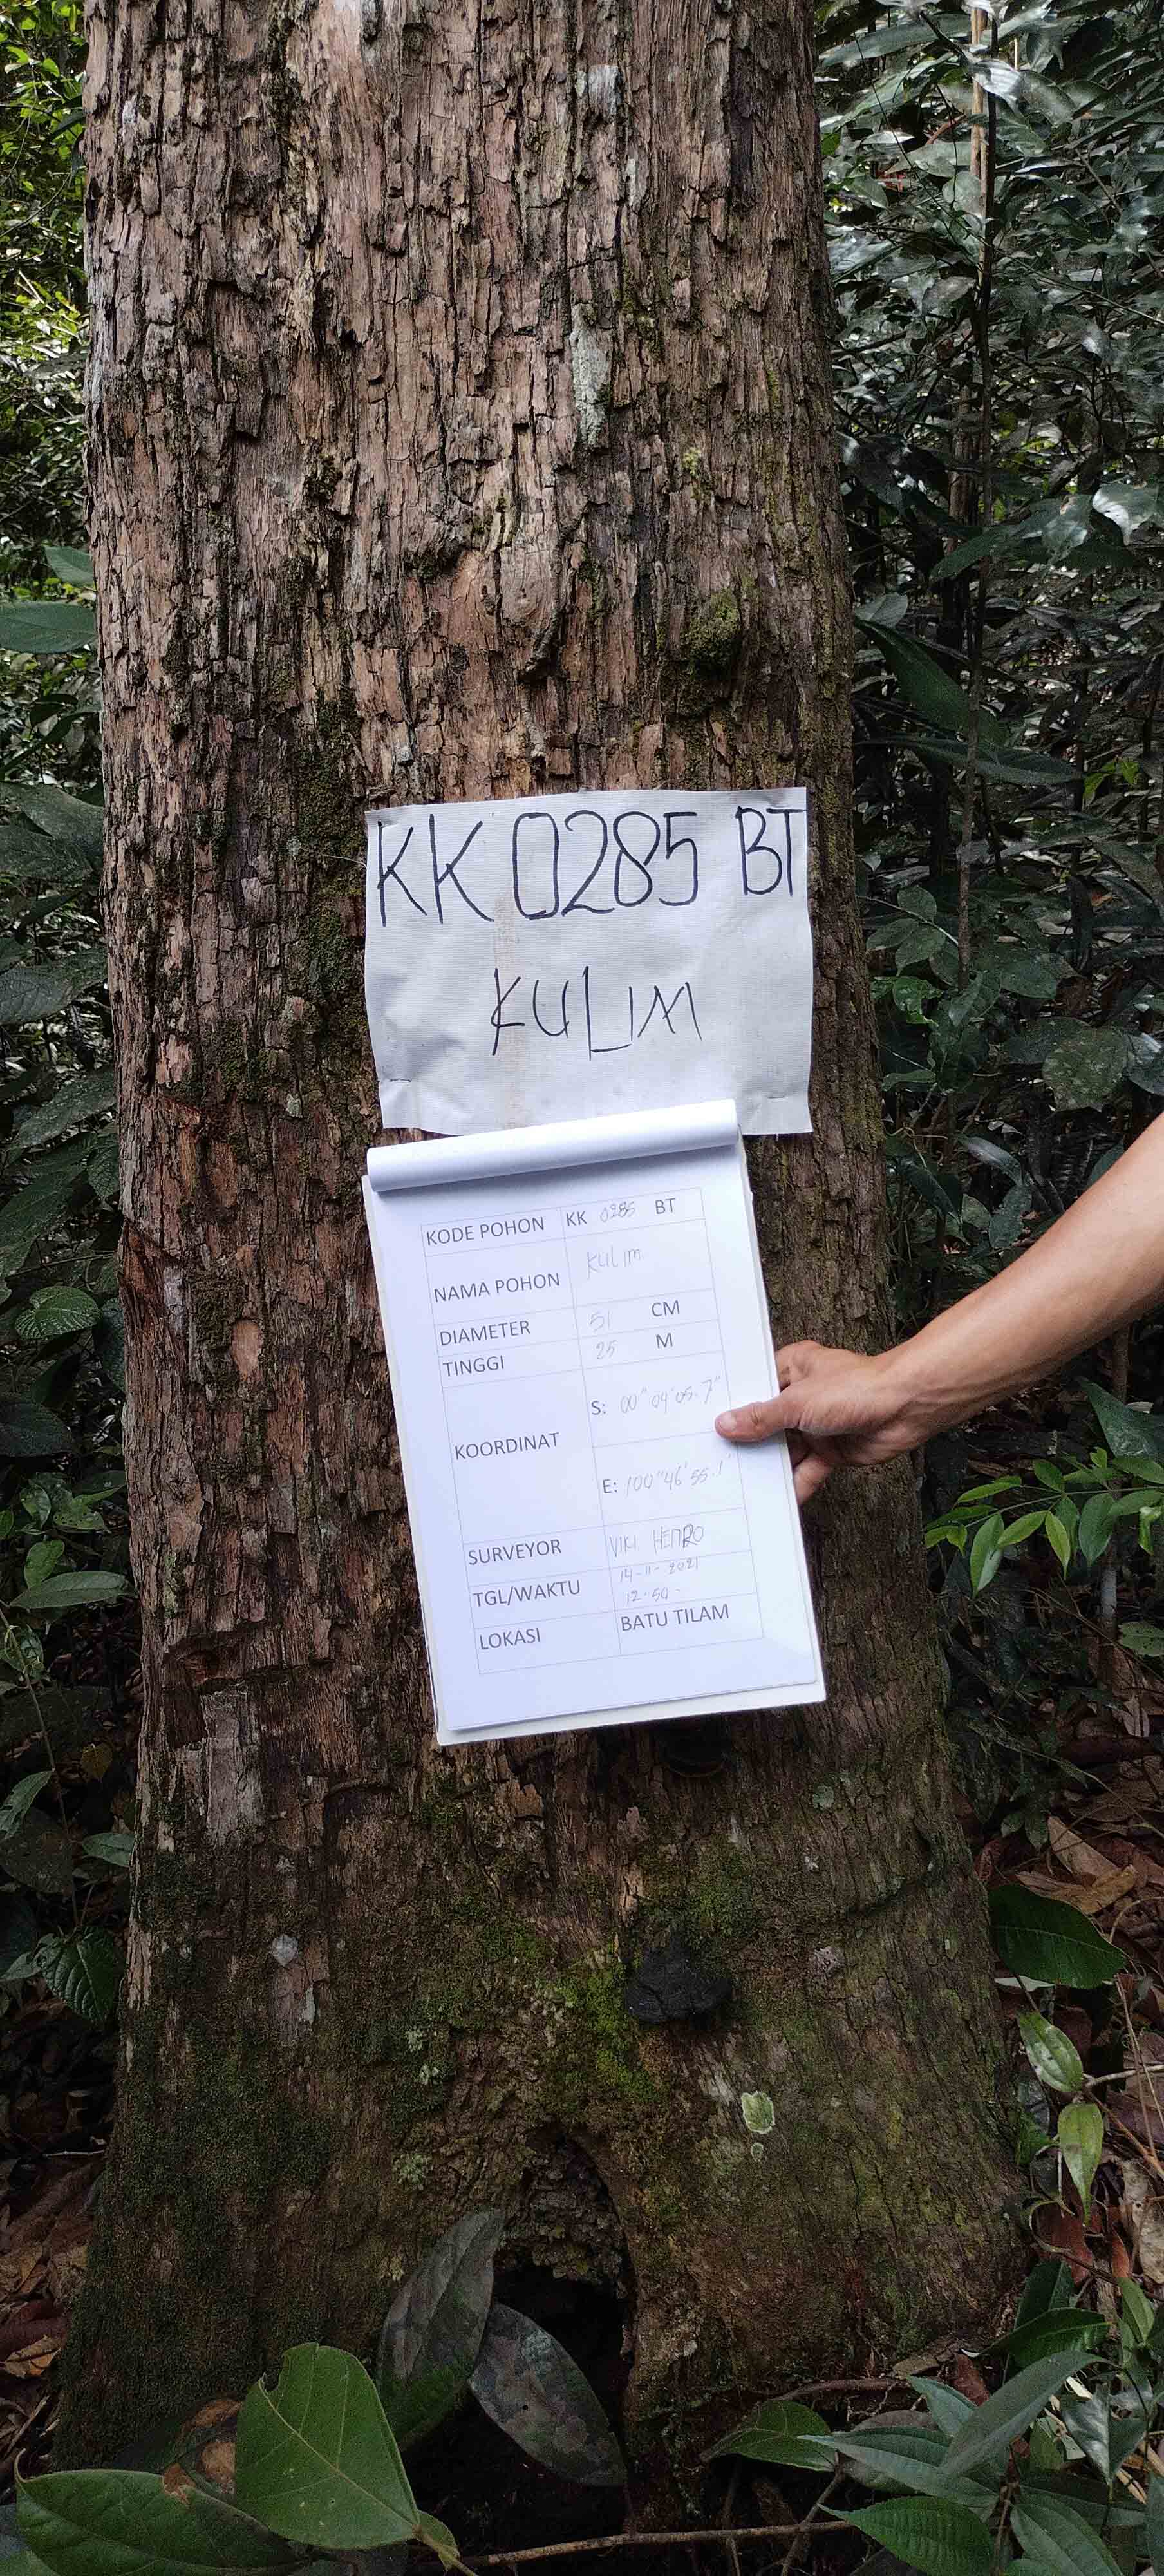 KK 0285 BT
KULIM
KODE POHON KK 0285 BT
NAMA POHON KULIM
DIAMETER 51 CM
TINGGI 25 M
KOORDINAT
S: 00" 04' 05.7"
E: 100" 46' 55.1"
SURVEYOR VIKI HENDRO
TGL/WAKTU 14-11-2021
12.50
LOKASI BATU TILAM